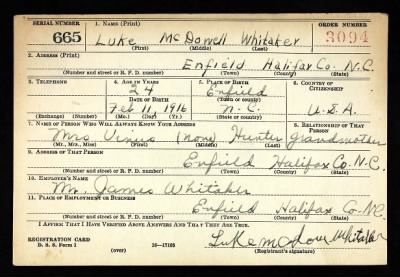 SERIAL NUMBER
1. NAME (Print)
ORDER NUMBER
665
Luke McDowell Whitaker
3094
(First) (Middle) (Last)
2. ADDRESS (Print)
Enfield Halifax Co. N.C.
(Number and street or R. F. D. number) (Town) (County) (State)
3. TELEPHONE
4. AGE IN YEARS
5. PLACE OF BIRTH
6. COUNTRY OF CITIZENSHIP
24
Enfield
DATE OF BIRTH
(Town or county)
Feb 11, 1916
N.C.
U.S.A.
(Exchange) (Number)
(Mo.) (Day) (Yr.)
(State or country)
7. NAME OF PERSON WHO WILL ALWAYS KNOW YOUR ADDRESS
8. RELATIONSHIP OF THAT PERSON
Mrs (none) Hunter grandmother
(Mr., Mrs., Miss) (First) (Middle) (Last)
9. ADDRESS OF THAT PERSON
Enfield Halifax Co. N.C.
(Number and street or R. F. D. number) (Town) (County) (State)
10. EMPLOYER'S NAME
Mr. James Whitaker
11. PLACE OF EMPLOYMENT OR BUSINESS
Enfield Halifax Co. N.C.
(Number and street or R. F. D. number) (Town) (County) (State)
I AFFIRM THAT I HAVE VERIFIED ABOVE ANSWERS AND THAT THEY ARE TRUE.
REGISTRATION CARD
D. S. S. Form 1
(over)
16—17105
Luke Whitaker
(Registrant's signature)